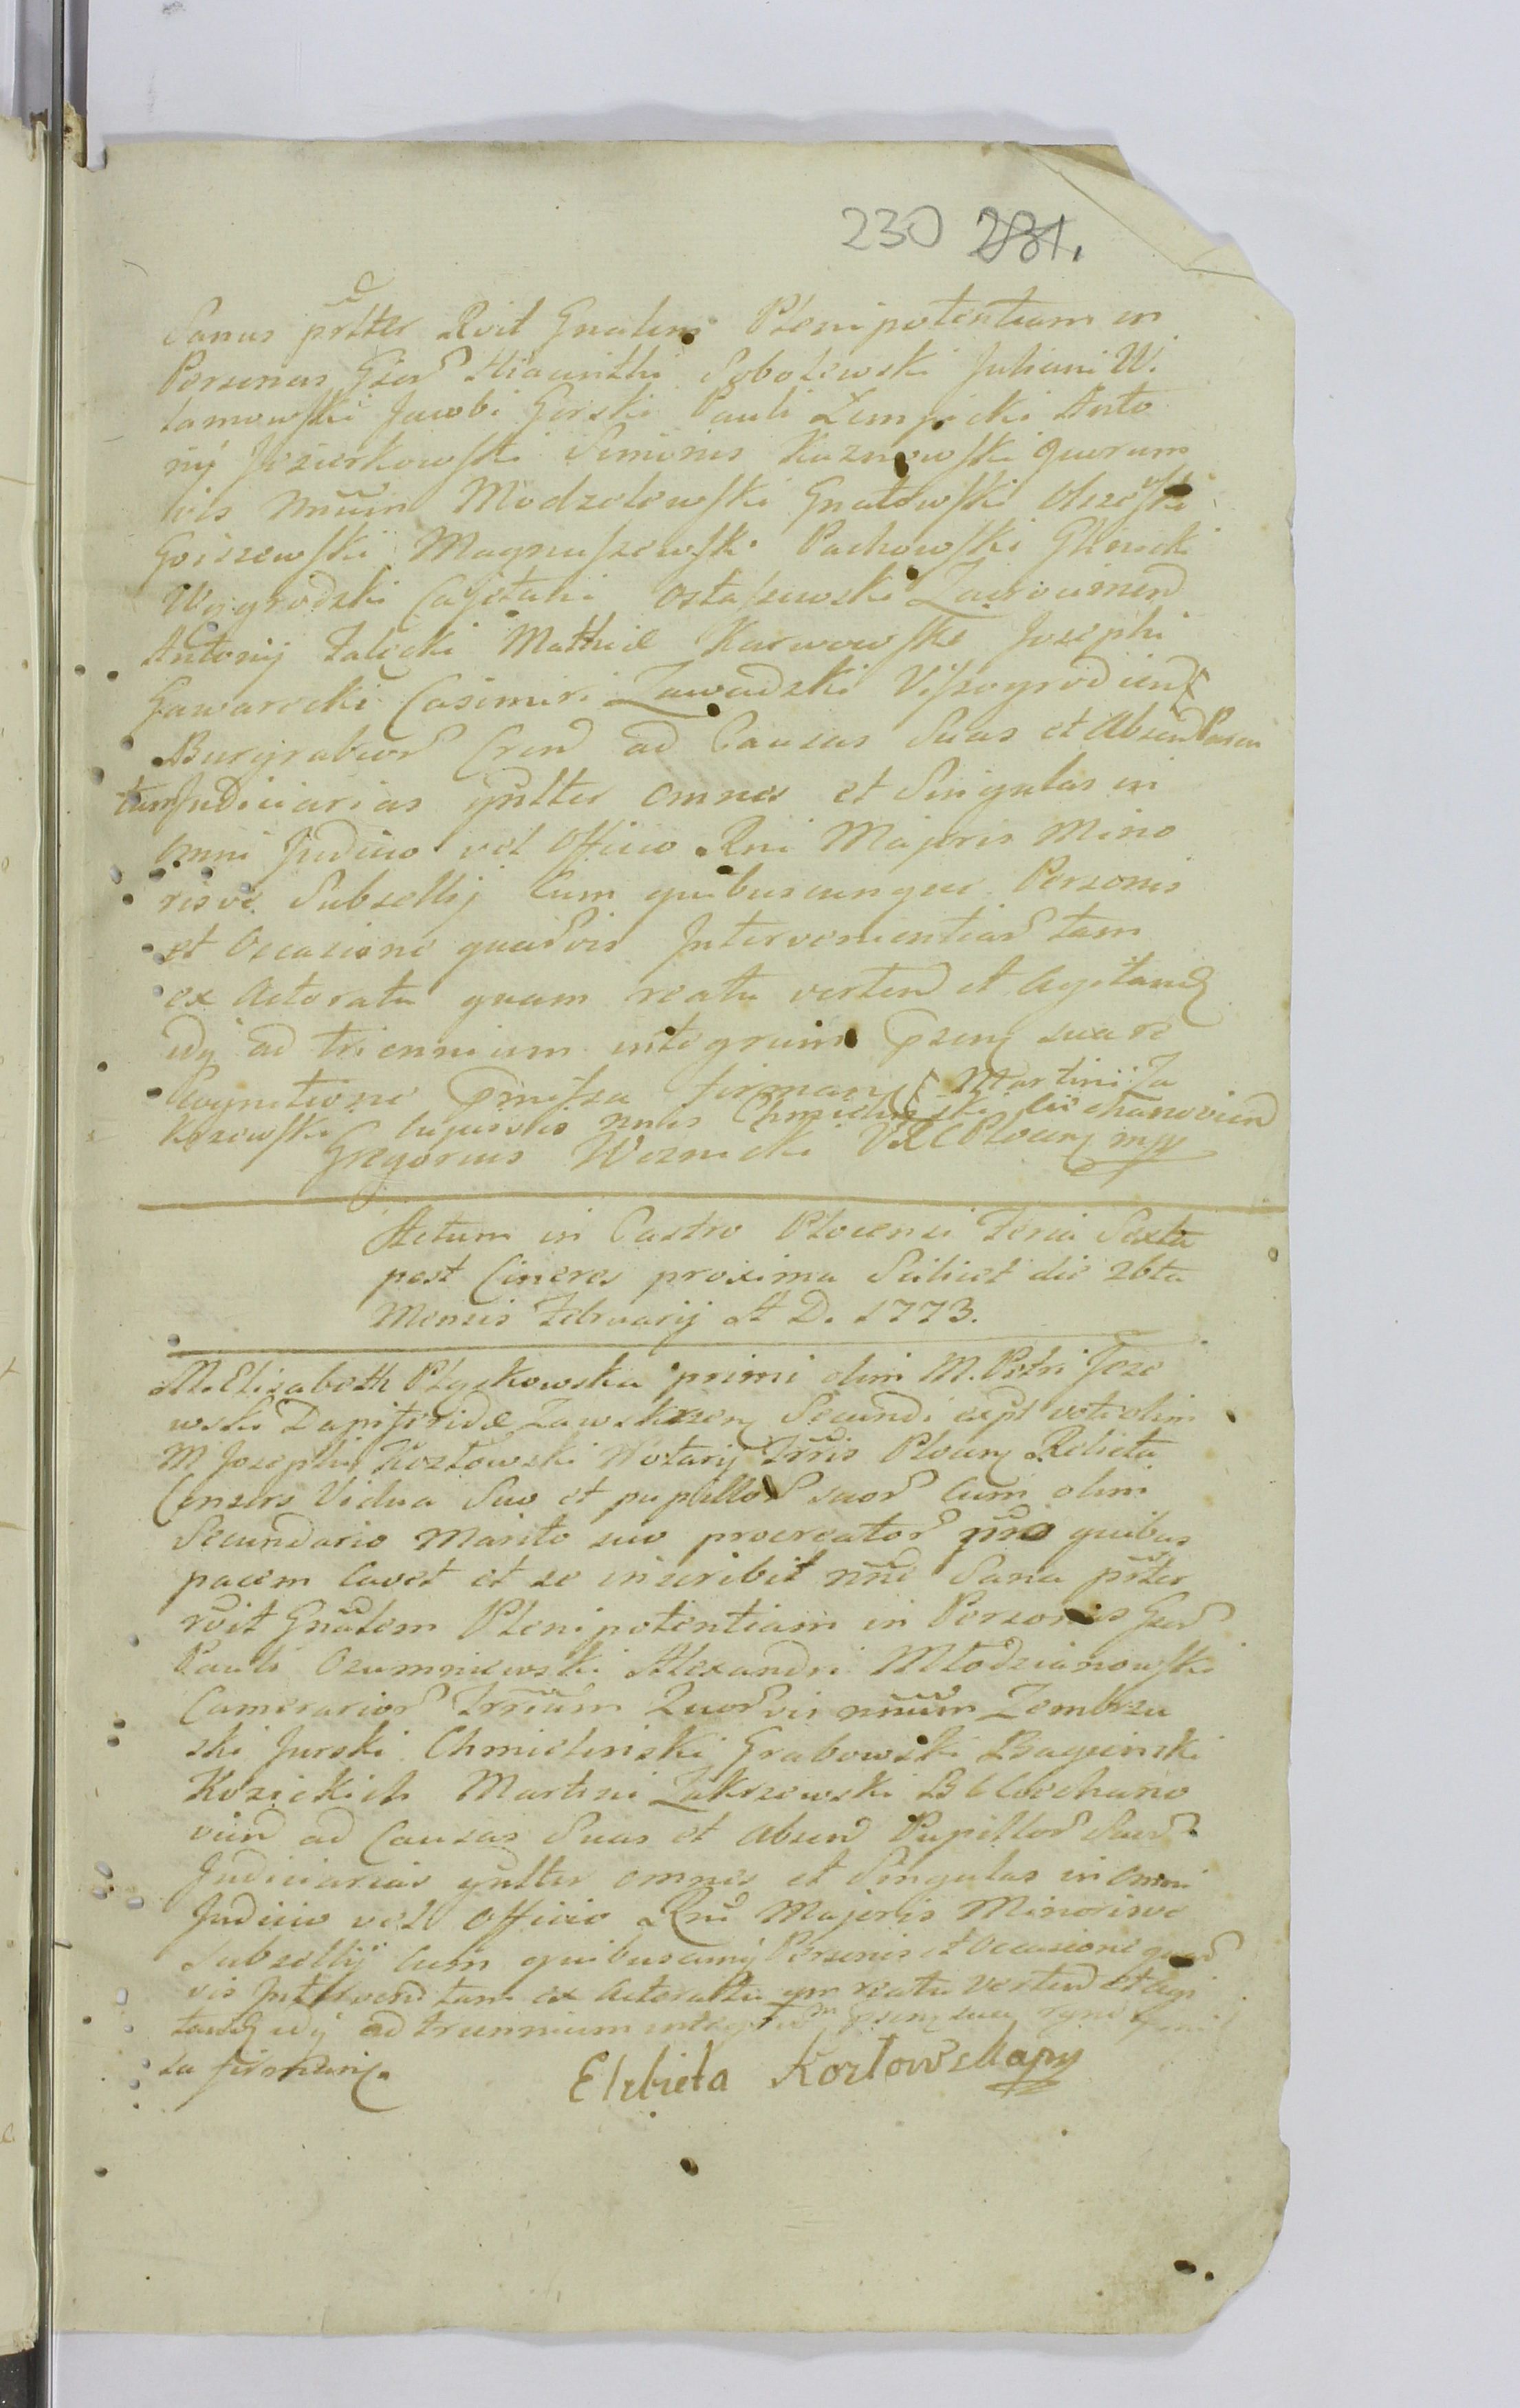 230 231.
Sanus prtter Rvit Gnalem Plenipotentiam in
Personas Gsor Hiacinthi Sobolewski Juliani Wi
tamowski Jacobi Gorski Pauli Zempicki Anto
nij Jezierkowski Simonis Kaznowski quorum
vis nnum Modzelewski Gnatowski Olszeski
Goiszewski Magnuszewski Pachowski Glinicki
Wygrodzki Cajetani Ostaszewski Zavoinen
Antonij Zalęcki Mathiæ Karwowski Josephi
Gawarecki Casimiri Zawadzki Viszogrodien
Burgrabior Cren ad Causas Suas et Absen Paren
tum Judiciarias gnltter omnes et Singulas in
omni Judicio vel Officio Rni Majoris Mino
risve Subsellij Cum quibuscunque Personis
et Occasione quarvis Intervenientiar tam
ex Actoratu quam reatu verten et Agitand
idq ad triennium integrum Psenq sua re
Cognitione Pmissa firman Martini Za
krzewski cujusvis nnis Chmieliński Ciechanovien
Gregorius Woznicki VRC Plocenq mp
Actum in Castro Plocensi Feria Sexta
post Cineres proxima Scilicet die 26ta
Mensis Februarij A D. 1773.
M. Elisabeth Płyckowska primi olim M. Petri Jeze
wski Dapiferidæ Zawskrzenq Secundi expt voti olim
M Josephi Kozłowski Notarij Trris Plocenq Relicta
Consors Vidua Suo et pupillor suor Cum olim
Secundario Marito suo procreator nno quibus
pacem Cavet et se inscribit nne Sana prter
rvit Gnalem Plenipotentiam in Personas Gsor
Pauli Ozumniewski Alexandri Młodzianowski
Camerarior Trrium Quorvis nnum Zembrzu
ski Jurski Chmieliński Grabowski Bagieński
Kozickich Martini Zakrzewski B C Ciechano
vien ad Causas Suas et Absen Pupillor Suor
Judiciarias gnltter omnes et Singulas in omni
Judicio vel Officio Rni Majoris Minorisve
Subsellij Cum quibuscunq Personis et Occasione quar
vis Interven tam ex Actoratu qm reatu verten et Agi
tand idq ad triennium integrum psenq sua
sa firmanq.
Elzbieta Kozłowska mp